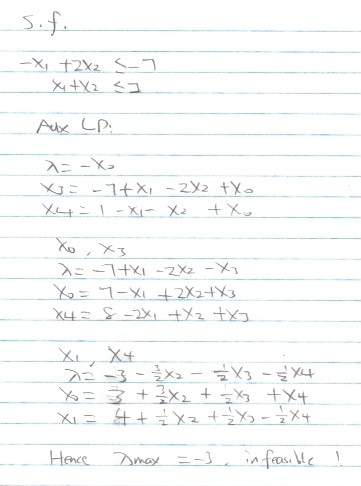 S.f.
-x₁ + 2x₂ ≤ -7
x₁ + x₂ ≤ 1
Aux LP:
λ = -x₀
x₃ = -7 + x₁ - 2x₂ + x₀
x₄ = 1 - x₁ - x₂ + x₀
x₀, x₃
λ = -7 + x₁ - 2x₂ - x₃
x₀ = 7 - x₁ + 2x₂ + x₃
x₄ = 8 - 2x₁ + x₂ + x₃
x₁, x₄
λ = -3 - 3/2 x₂ - 1/2 x₃ - 1/2 x₄
x₀ = 3 + 3/2 x₂ + 1/2 x₃ + x₄
x₁ = 4 + 1/2 x₂ + 1/2 x₃ - 1/2 x₄
Hence λmax = -3, infeasible!